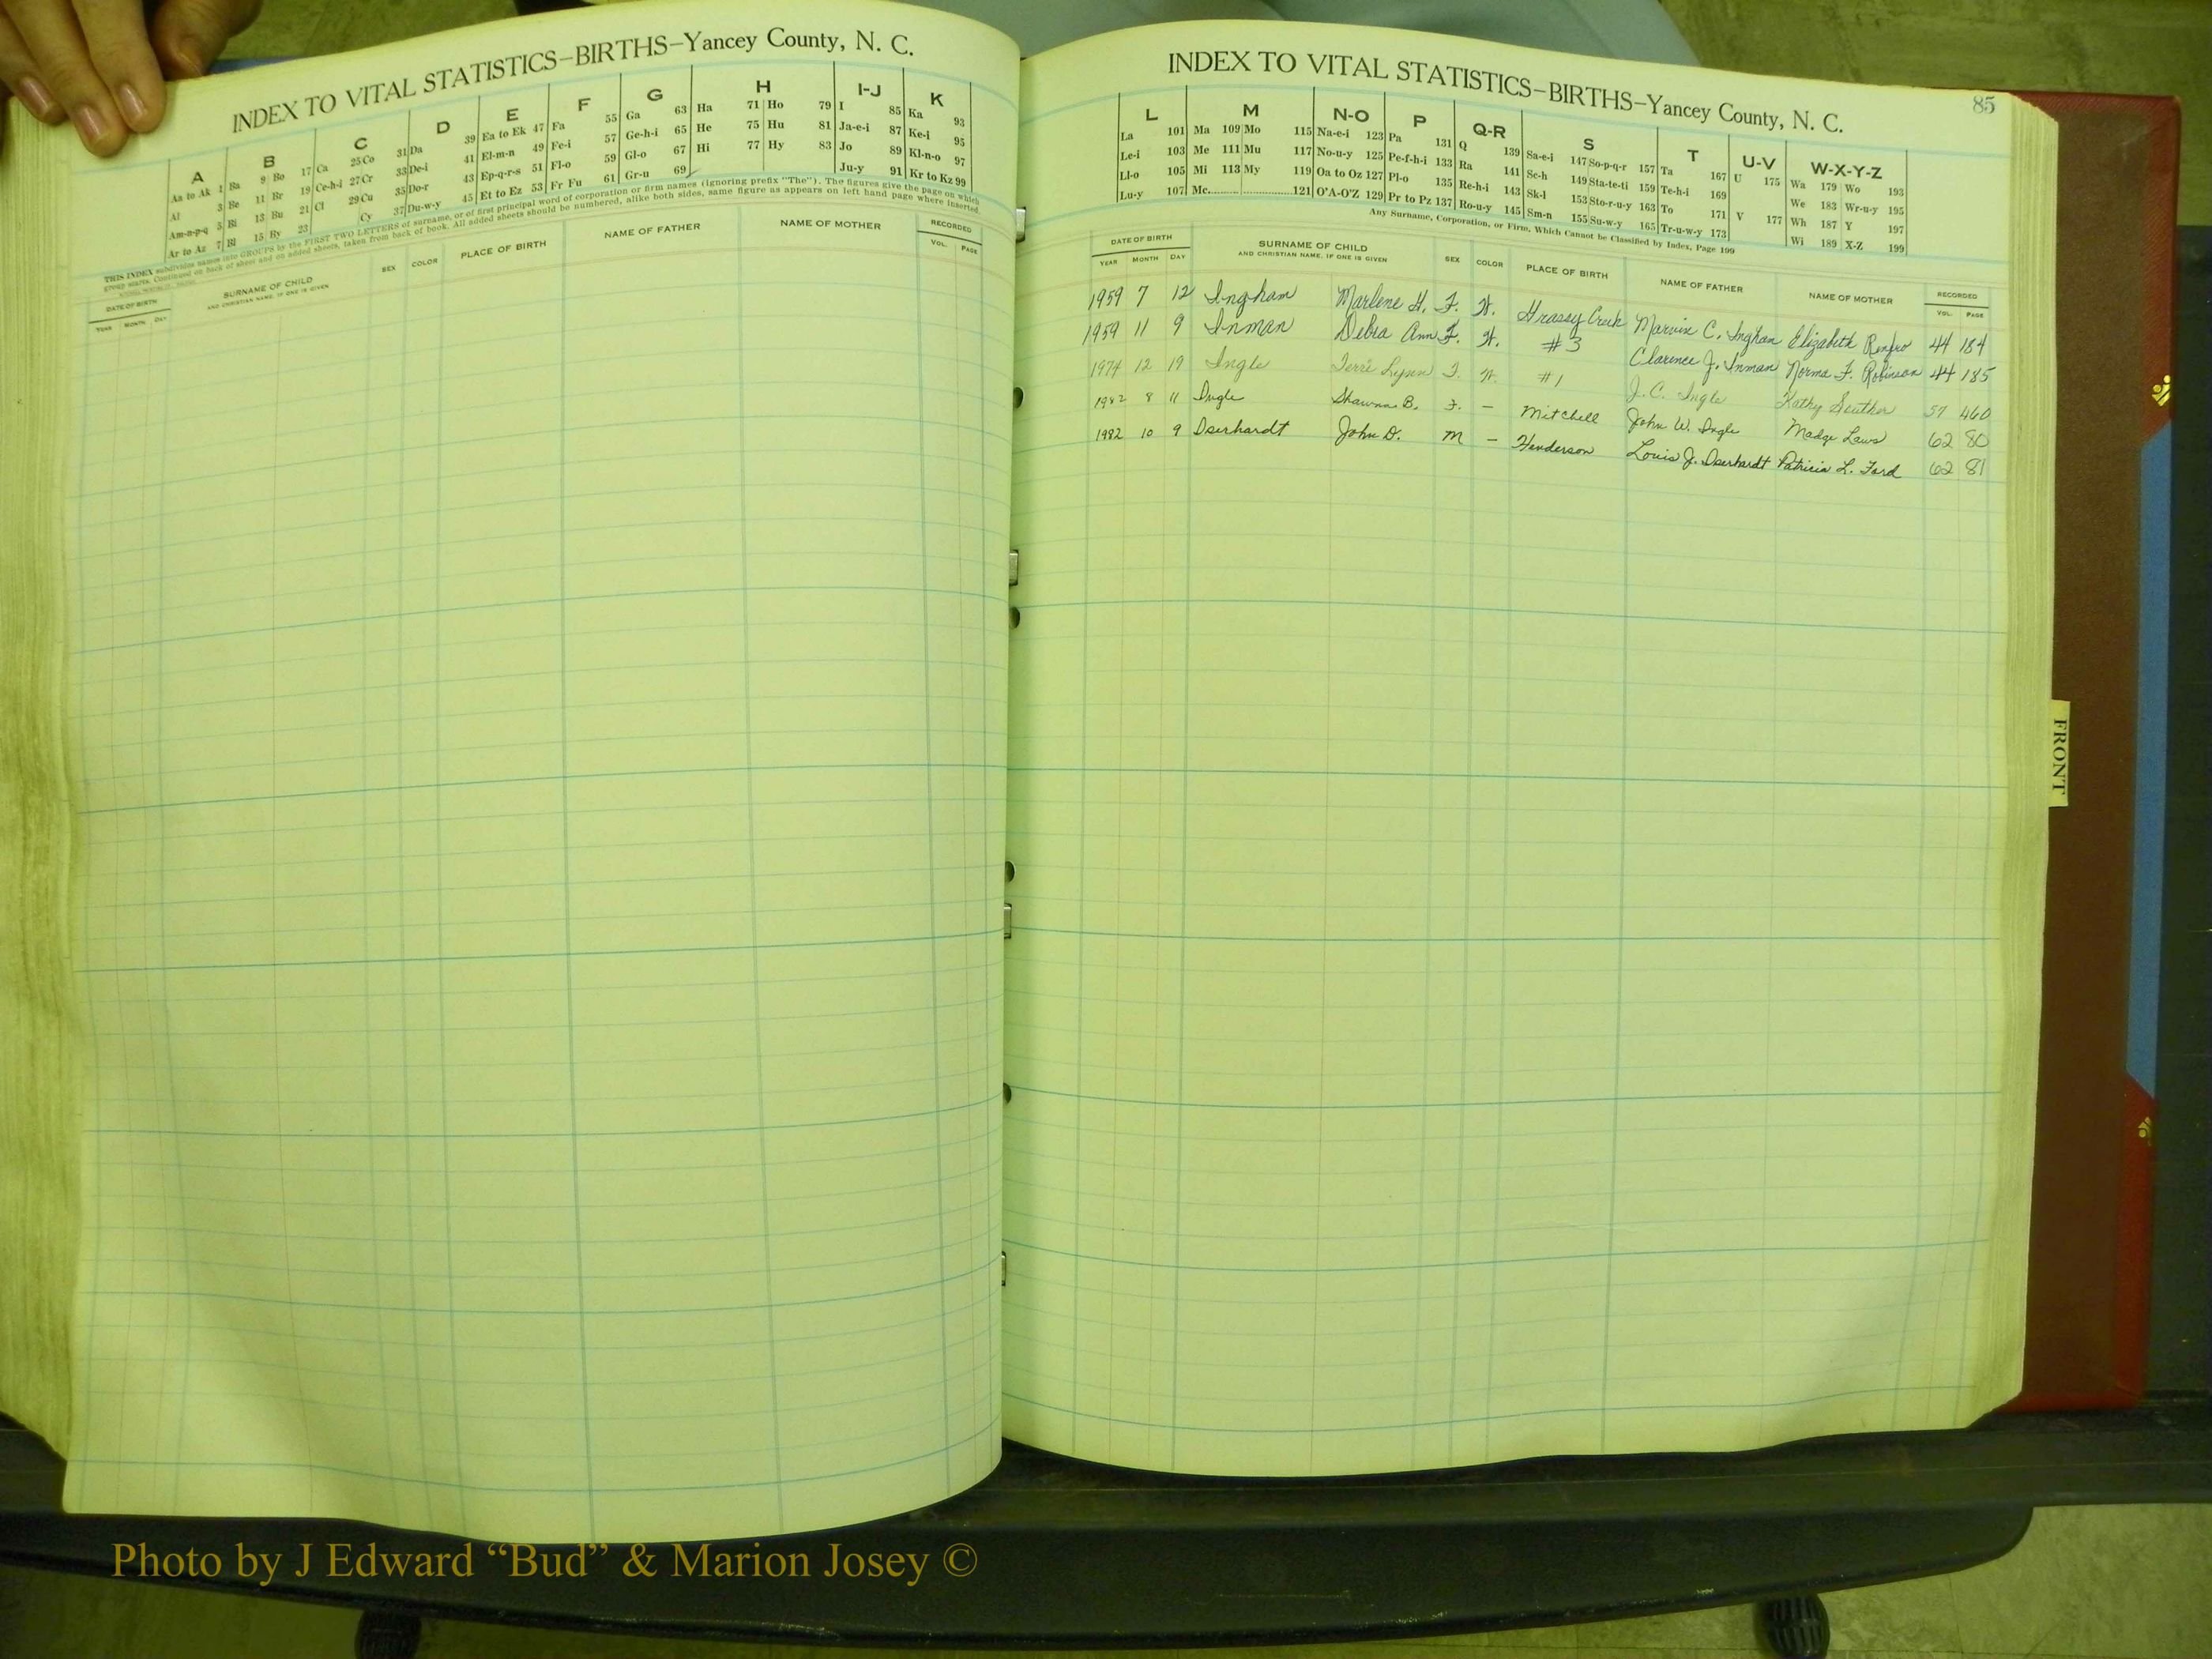 INDEX TO VITAL STATISTICS—BIRTHS—Yancey County, N. C.
A B C D E F G H I-J K
Aa to Ak 1 Ba 9 Bo 17 Ca 25 Co 31 Da 39 Ea to Ek 47 Fa 55 Ga 63 Ha 71 Ho 79 I 85 Ka 93
Al 3 Be 11 Br 19 Ce-h-i 27 Cr 33 De-i 41 El-m-n 49 Fe-i 57 Ge-h-i 65 He 75 Hu 81 Ja-e-i 87 Ke-i 95
Am-n-p-q 5 Bi 13 Bu 21 Cl 29 Cu 35 Do-r 43 Ep-q-r-s 51 Fl-o 59 Gl-o 67 Hi 77 Hy 83 Jo 89 Kl-n-o 97
Ar to Az 7 Bl 15 By 23 Cy 37 Du-w-y 45 Et to Ez 53 Fr Fu 61 Gr-u 69 Ju-y 91 Kr to Kz 99
THIS INDEX subdivides names into GROUPS by the FIRST TWO LETTERS of surname, or of first principal word of corporation or firm names (ignoring prefix "The"). The figures give the page on which
group starts. Continued on back of sheet and on added sheets, taken from back of book. All added sheets should be numbered, alike both sides, same figure as appears on left hand page where inserted.
DATE OF BIRTH SURNAME OF CHILD SEX COLOR PLACE OF BIRTH NAME OF FATHER NAME OF MOTHER RECORDED
YEAR MONTH DAY AND CHRISTIAN NAME, IF ONE IS GIVEN VOL. PAGE
85
INDEX TO VITAL STATISTICS—BIRTHS—Yancey County, N. C.
L M N-O P Q-R S T U-V W-X-Y-Z
La 101 Ma 109 Mo 115 Na-e-i 123 Pa 131 Q 139 Sa-e-i 147 So-p-q-r 157 Ta 167 U 175 Wa 179 Wo 193
Le-i 103 Me 111 Mu 117 No-u-y 125 Pe-f-h-i 133 Ra 141 Sc-h 149 Sta-te-ti 159 Te-h-i 169 We 183 Wr-u-y 195
Ll-o 105 Mi 113 My 119 Oa to Oz 127 Pl-o 135 Re-h-i 143 Sk-l 153 Sto-r-u-y 163 To 171 V 177 Wh 187 Y 197
Lu-y 107 Mc 121 O'A-O'Z 129 Pr to Pz 137 Ro-u-y 145 Sm-n 155 Su-w-y 165 Tr-u-w-y 173 Wi 189 X-Z 199
Any Surname, Corporation, or Firm, Which Cannot be Classified by Index, Page 199
DATE OF BIRTH SURNAME OF CHILD SEX COLOR PLACE OF BIRTH NAME OF FATHER NAME OF MOTHER RECORDED
YEAR MONTH DAY AND CHRISTIAN NAME, IF ONE IS GIVEN VOL. PAGE
1959 7 12 Ingham Marlene H. F. W. Grassy Creek Marvin C. Ingham Elizabeth Renfro 44 184
1959 11 9 Inman Debra Ann F. W. #3 Clarence J. Inman Norma F. Robinson 44 185
1974 12 19 Ingle Terri Lynn F. W. #1 J.C. Ingle Kathy 57 460
1982 8 11 Ingle Shawna B. F. — Mitchell John W. Ingle Madge Laws 62 80
1982 10 9 Iserhardt John D. M — Henderson Louis J. Iserhardt Patricia L. Ford 62 81
FRONT
Photo by J Edward “Bud” & Marion Josey ©